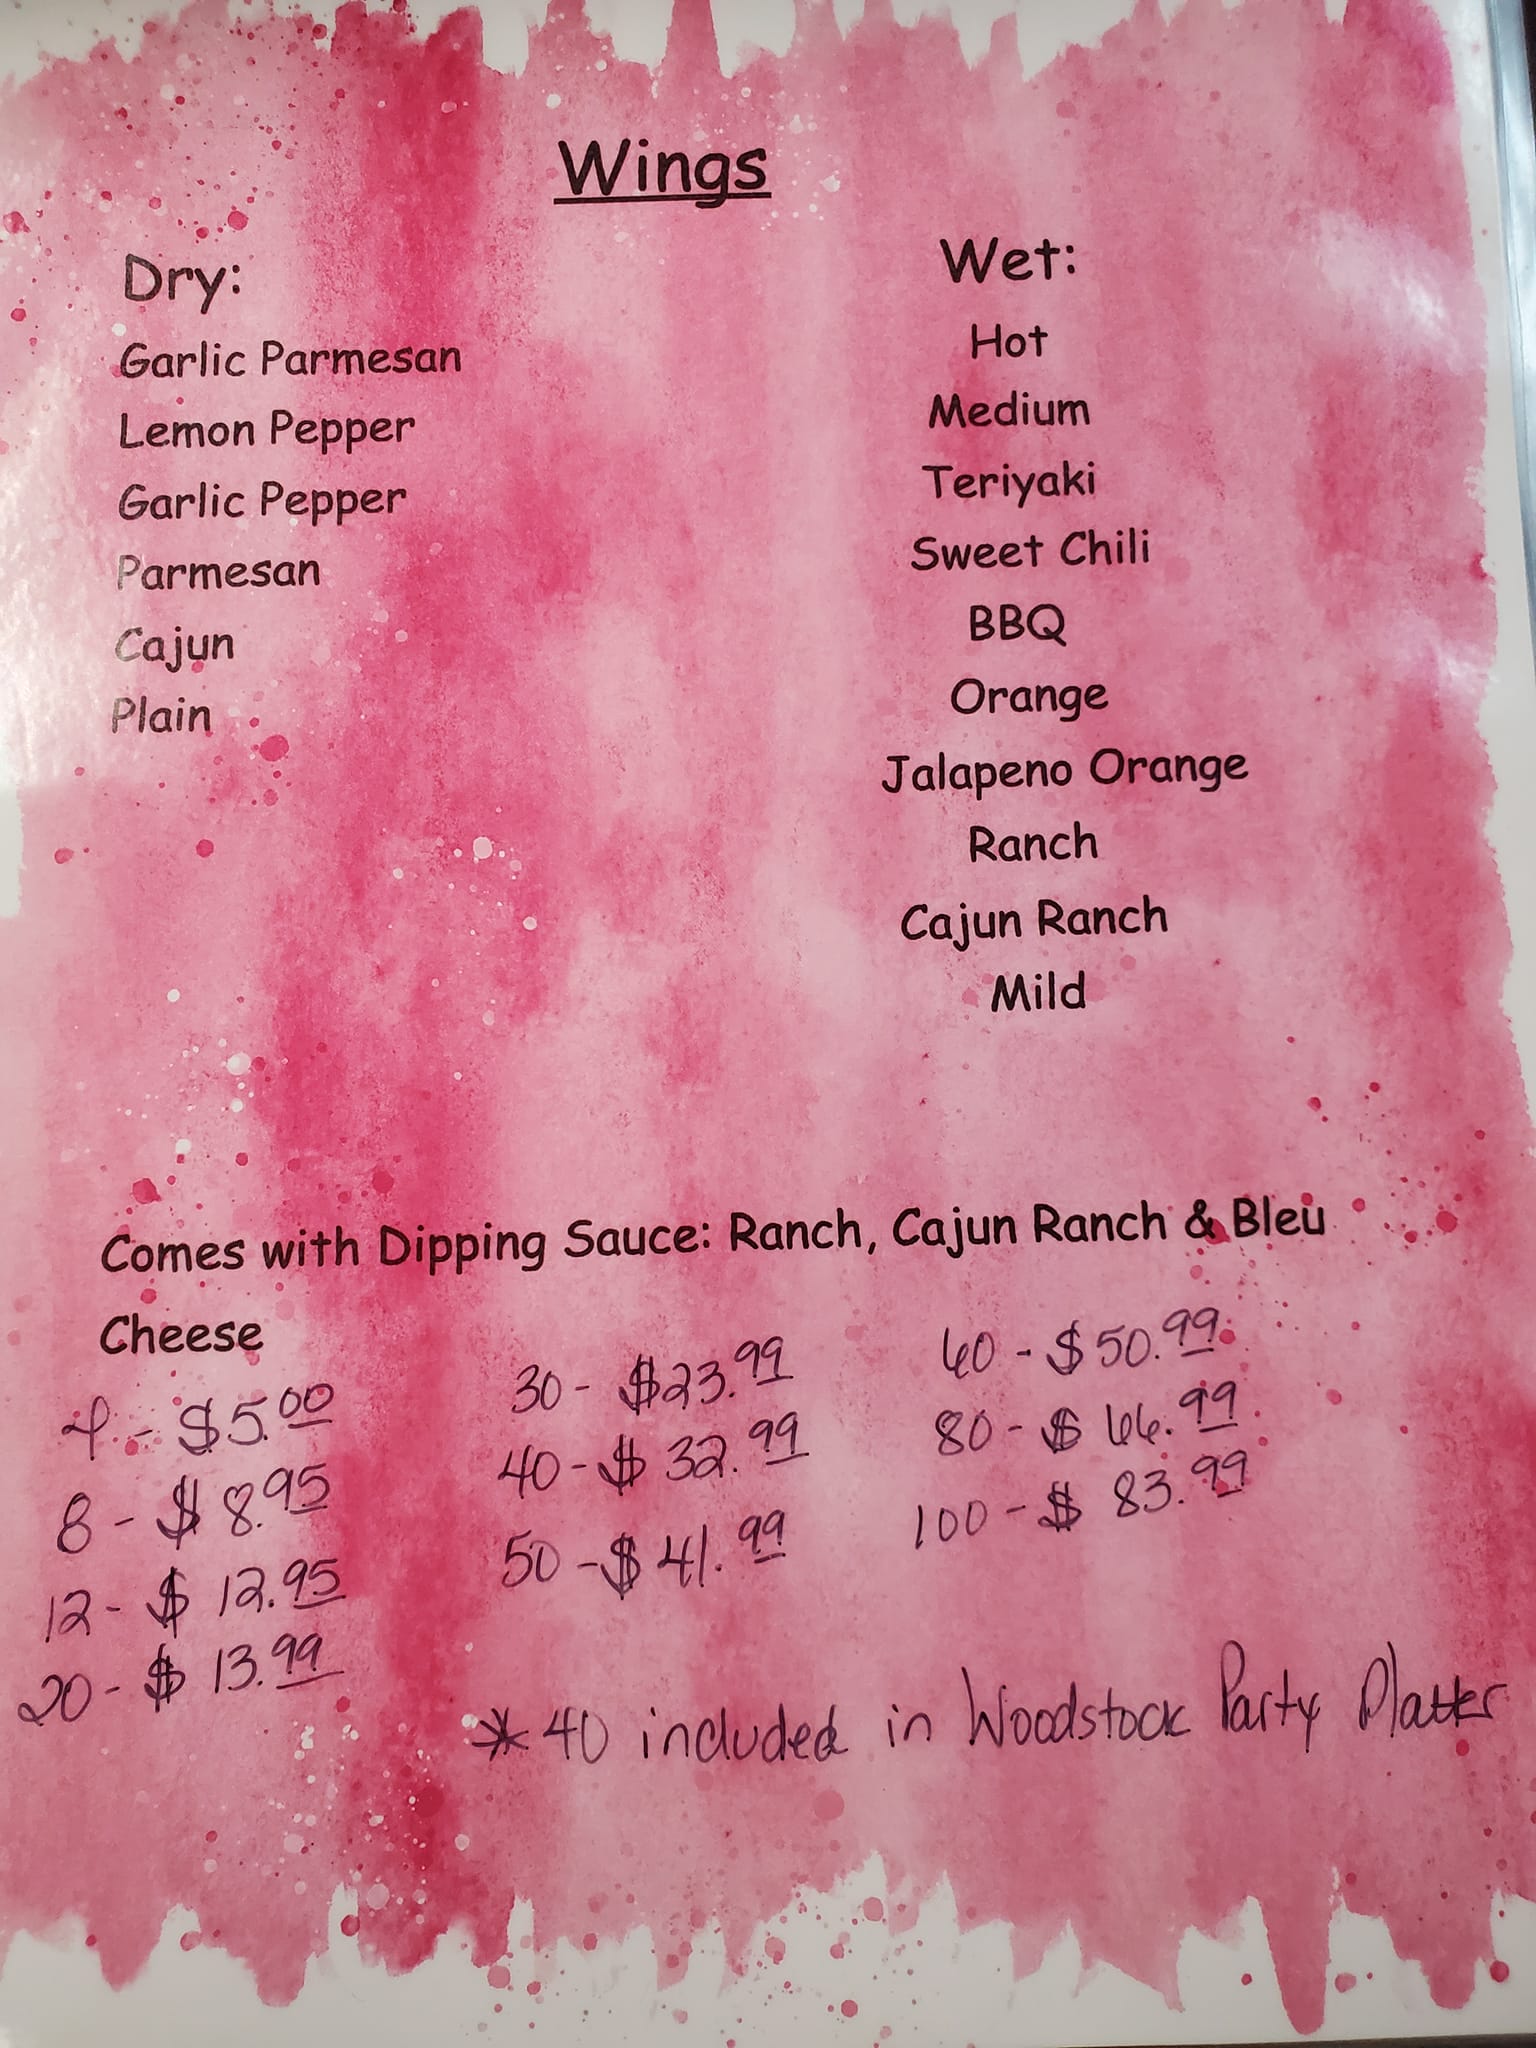 Wings
Dry:
Garlic Parmesan
Lemon Pepper
Garlic Pepper
Parmesan
Cajun
Plain
Wet:
Hot
Medium
Teriyaki
Sweet Chili
BBQ
Orange
Jalapeno Orange
Ranch
Cajun Ranch
Mild
Comes with Dipping Sauce: Ranch, Cajun Ranch & Bleu
Cheese
4 - $5.00
8 - $8.95
12 - $12.95
20 - $13.99
30 - $23.99
40 - $32.99
50 - $41.99
60 - $50.99
80 - $66.99
100 - $83.99
* 40 included in Woodstock Party Platter